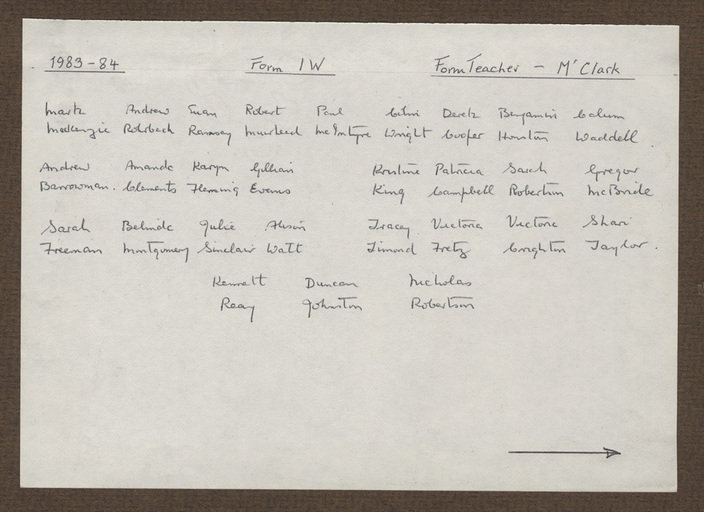 1983-84 Form 1W Form Teacher - Mr Clark
Mark Andrew Euan Robert Paul Colin Derek Benjamin Calum
MacKenzie Rohrbach Ramsay Muirhead McIntyre Wright Cooper Houston Waddell
Andrew Amanda Karyn Gillian Kristine Patricia Sarah Gregor
Barrowman. Clements Fleming Evans King Campbell Robertson McBride
Sarah Belinda Julie Alison Tracey Victoria Victoria Shari
Freeman Montgomery Sinclair Watt Timond Fretz Crighton Taylor.
Kenneth Duncan Nicholas
Reay Johnston Robertson